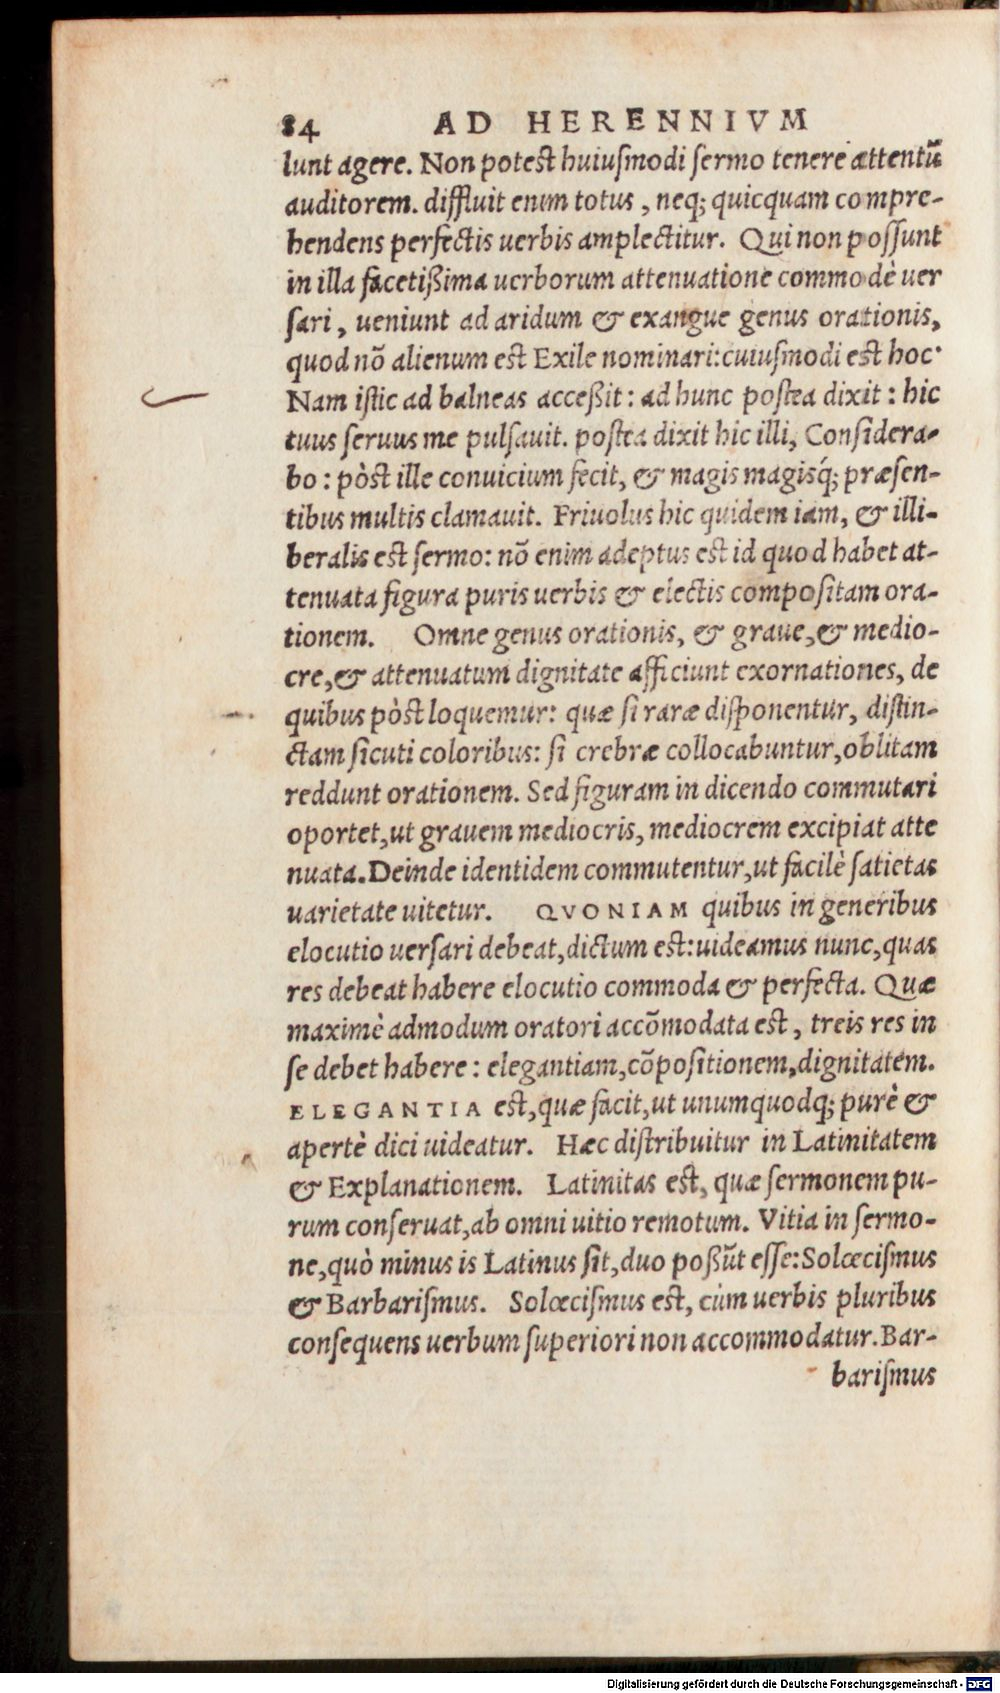 84 AD HERENNIVM
lunt agere. Non potest huiuſmodi ſermo tenere attentũ
auditorem. diffluit enim totus, neq; quicquam compre-
hendens perfectis uerbis amplectitur. Qui non poſſunt
in illa facetißima uerborum attenuatione commodè uer
ſari, ueniunt ad aridum & exangue genus orationis,
quod nõ alienum est Exile nominari: cuiuſmodi est hoc.
Nam iſtic ad balneas acceßit: ad hunc poſtea dixit: hic
tuus ſeruus me pulſauit. poſtea dixit hic illi, Conſidera-
bo: pòſt ille conuicium fecit, & magis magisq́; præſen-
tibus multis clamauit. Friuolus hic quidem iam, & illi-
beralis est ſermo: nõ enim adeptus est id quod habet at-
tenuata figura puris uerbis & electis compoſitam ora-
tionem. Omne genus orationis, & graue, & medio-
cre, & attenuatum dignitate afficiunt exornationes, de
quibus pòſt loquemur: quæ ſi raræ diſponentur, diſtin-
ctam ſicuti coloribus: ſi crebræ collocabuntur, oblitam
reddunt orationem. Sed figuram in dicendo commutari
oportet, ut grauem mediocris, mediocrem excipiat atte
nuata. Deinde identidem commutentur, ut facilè ſatietas
uarietate uitetur. QVONIAM quibus in generibus
elocutio uerſari debeat, dictum est: uideamus nunc, quas
res debeat habere elocutio commoda & perfecta. Quæ
maximè admodum oratori accõmodata est, treis res in
ſe debet habere: elegantiam, cõpoſitionem, dignitatem.
ELEGANTIA est, quæ facit, ut unumquodq; purè &
apertè dici uideatur. Hæc diſtribuitur in Latinitatem
& Explanationem. Latinitas est, quæ ſermonem pu-
rum conſeruat, ab omni uitio remotum. Vitia in ſermo-
ne, quò minus is Latinus ſit, duo poßũt eſſe: Solœciſmus
& Barbariſmus. Solœciſmus est, cùm uerbis pluribus
conſequens uerbum ſuperiori non accommodatur. Bar-
bariſmus
Digitalisierung gefördert durch die Deutsche Forschungsgemeinschaft - DFG